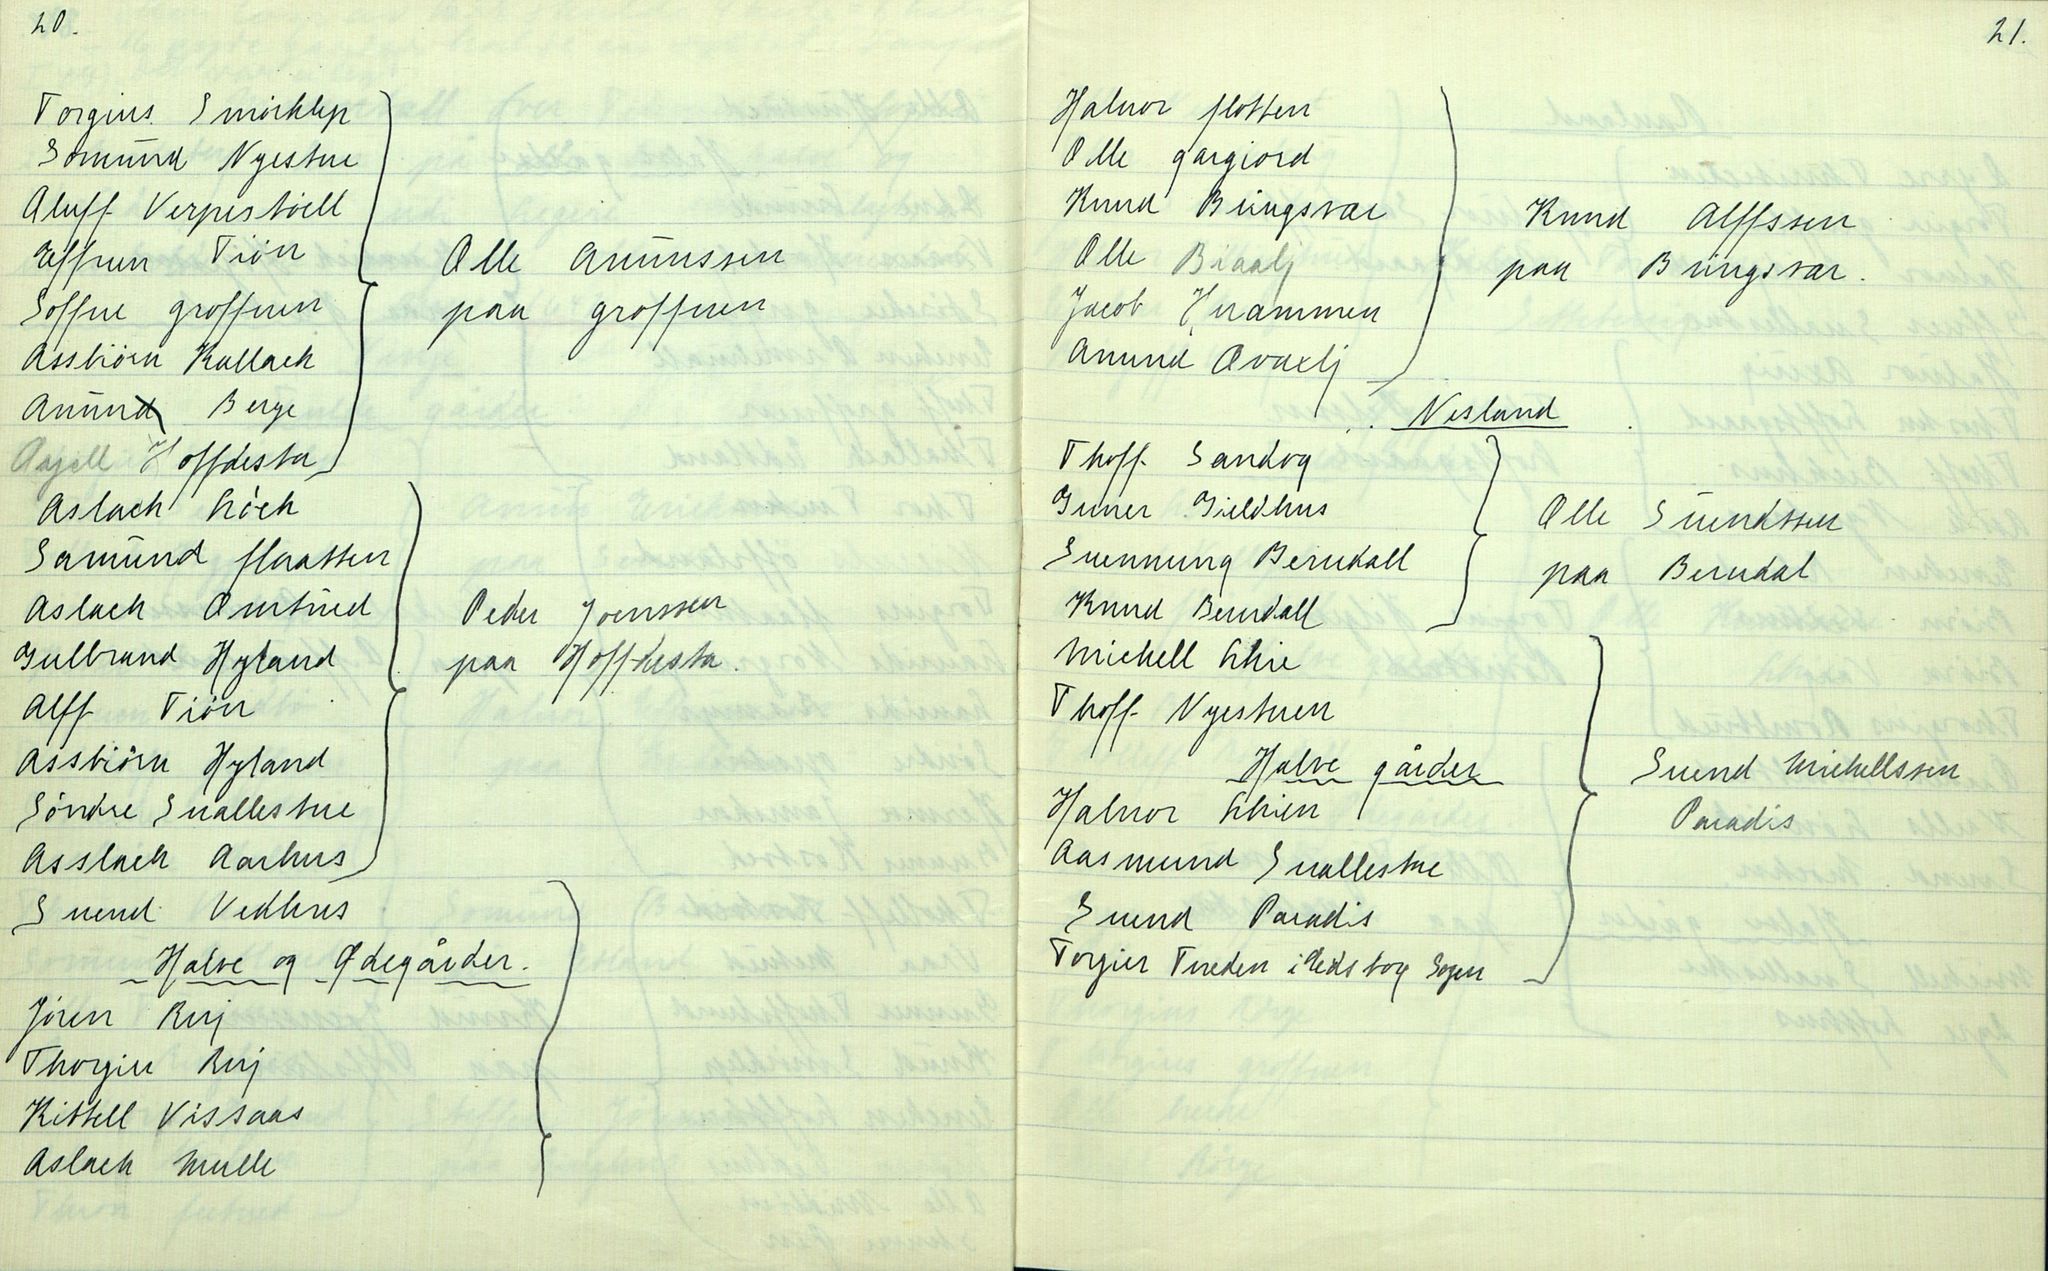 20.
Torgius Smörklep
Somund Nyestue
Aluff Verpestöell
Effuen Tiön
Soffue groffuen
Assbiörn Kallach
Anund Berge
Aagell Hoffdesta
Olle Anunssen
paa groffuen
Aslach Löck
Samund flaatten
Aslach Omtued
Gulbrand Hyland
Alff Tiön
Assbiörn Hyland
Söndre Suallestue
Asslach Aarhus
Peder Joenssen
paa Hoffdesta.
Suend Vedhus
Halve og Ødegårder.
Jören Ruj
Thorgier Ruj
Kittell Vissaas
Aslach Mulle
21.
Haluor flotten
Olle gargiord
Knud Bringsvar
Olle Biaalj
Jacob Hrammen
Anund Ovaxlj
Knud Alffssen
paa Bringsvar.
Nesland
Thoff Sandog
Gunner Gieldhus
Suennung Berudall
Knud Berudall
Olle Suendssen
paa Berudal
Michell Lihie
Thoff Nyestuen
Halve gårder
Haluor Lihien
Aasmund Suallestue
Suend Paradis
Torgier Tueden i Gedsbog Sogen
Suend Michellssen
Paradis